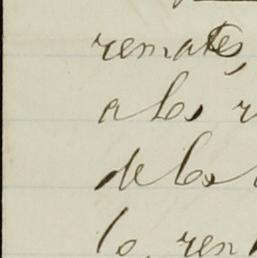 remates,
a los r
de los
lo ren